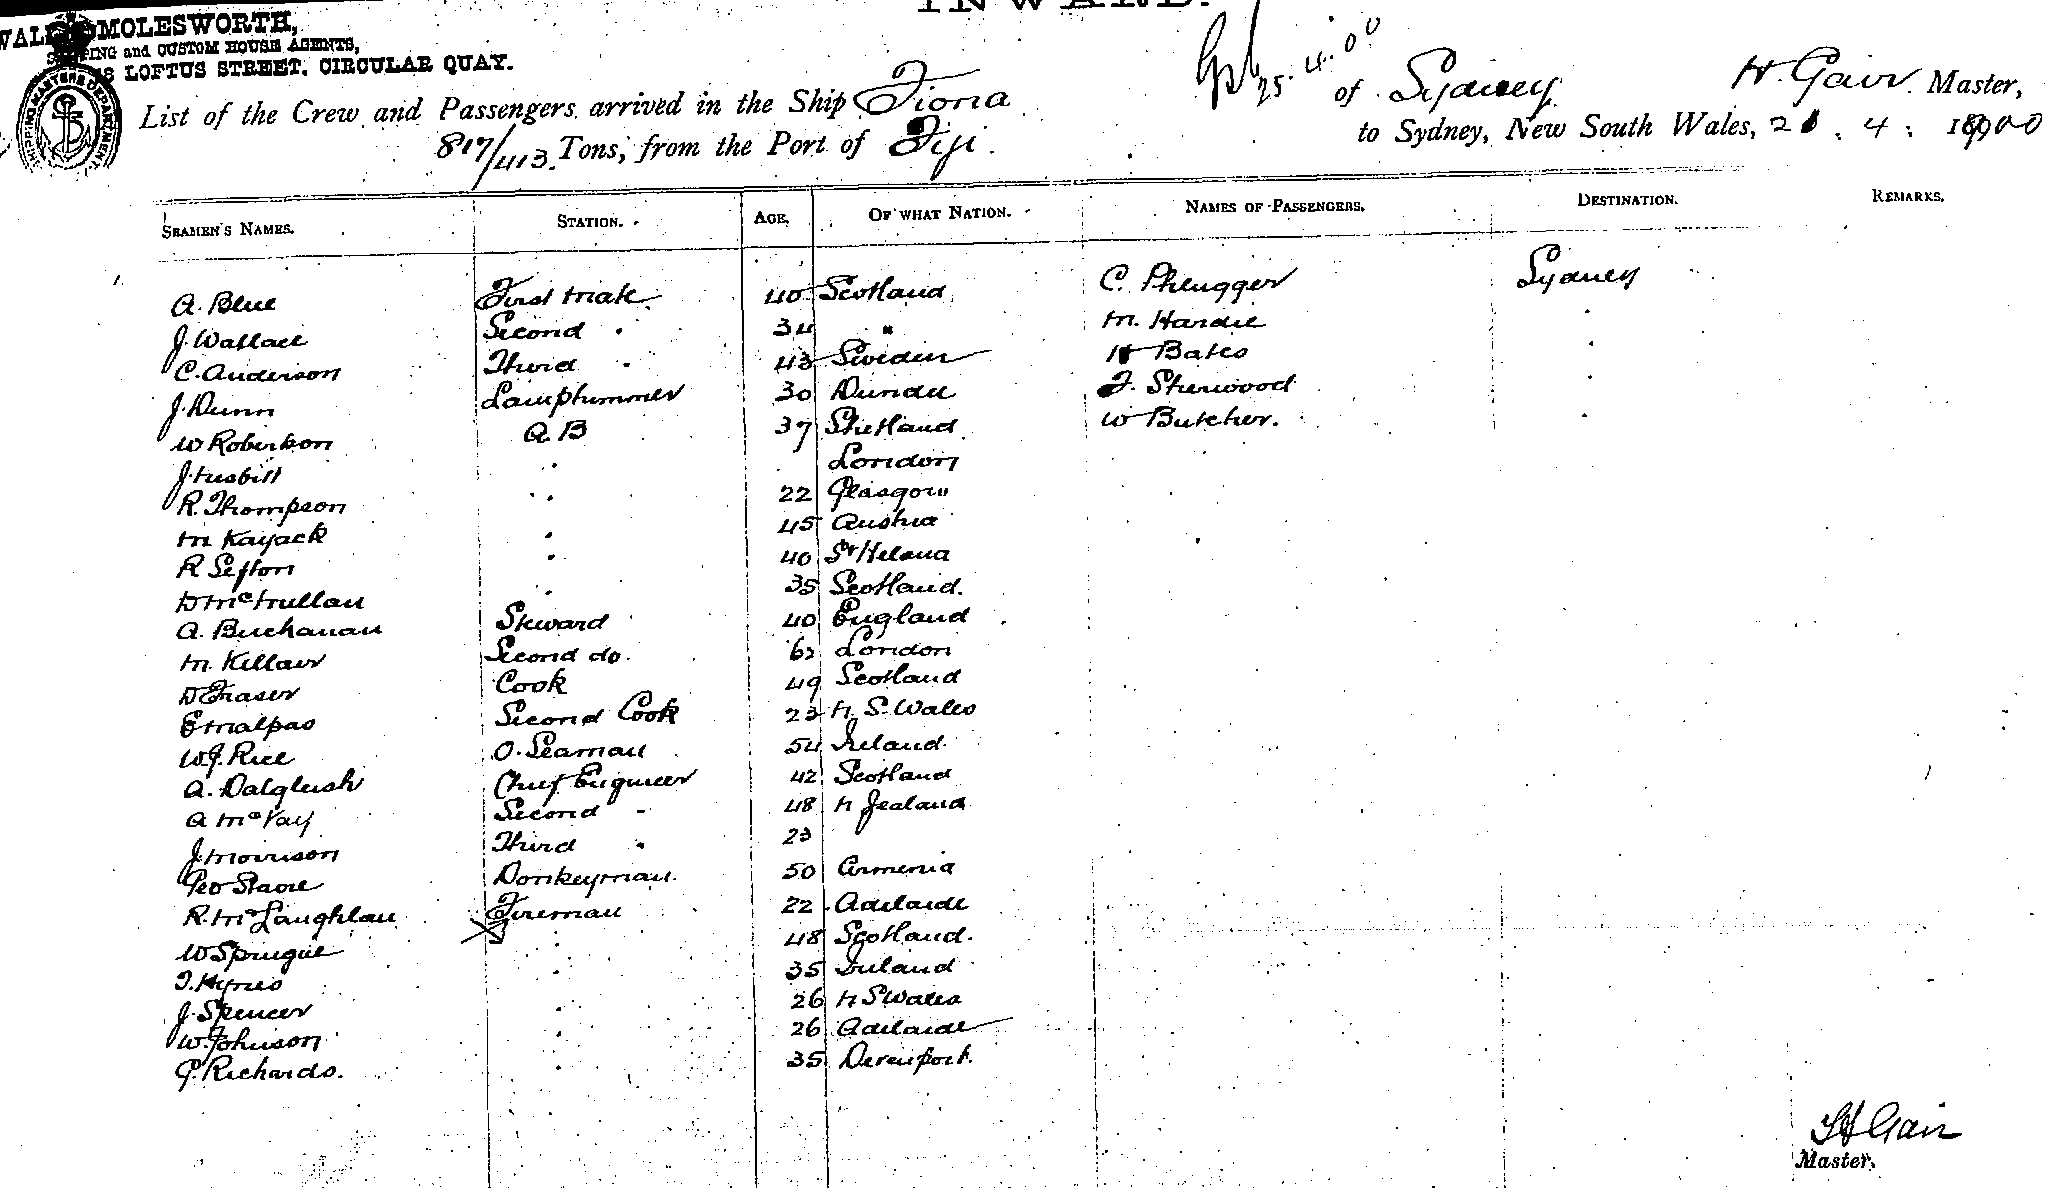 INWARD.
MOLESWORTH,
SHIPPING and CUSTOM HOUSE AGENTS,
LOFTUS STREET, CIRCULAR QUAY.
SHIPPING MASTERS DEPARTMENT
25.4.00
List of the Crew and Passengers arrived in the Ship Fiona of Sydney H. Gair Master,
817/413 Tons, from the Port of Fiji. to Sydney, New South Wales, 21.4.1900
SEAMEN'S NAMES. STATION. AGE. OF WHAT NATION. NAMES OF PASSENGERS. DESTINATION. REMARKS.
A. Blue First Mate 40 Scotland C. Phlugger Sydney
J. Wallace Second " 34 " M. Hardie "
C. Anderson Third " 43 Sweden H Bates "
J. Dunn Lamptrimmer 30 Dundee F. Sherwood "
W Robertson A B 37 Shetland W Butcher. "
J. " London
R. Thompson " 22 Glasgow
M Kayack " 45 Austria
R Sefton " 40 St Helena
D McMullan " 35 Scotland.
A. Buchanan Steward 40 England
M. Killain Second do. 62 London
D Fraser Cook 49 Scotland
E Malpas Second Cook 23 N. S. Wales
W.J. Rice O. Seaman 54 Ireland.
A. Dalgleish Chief Engineer 42 Scotland
A McVay Second " 48 N Zealand
J. Morrison Third " 23
Geo Armenia Donkeyman. 50
R. McLaughlan Fireman 22 Adelaide
W Sprugue " 48 Scotland.
T. Hynes " 35 Ireland
J. Spencer " 26 N S Wales
W. Johnson " 26 Adelaide
G. Richards. " 35 Devenport.
H Gair
Master.